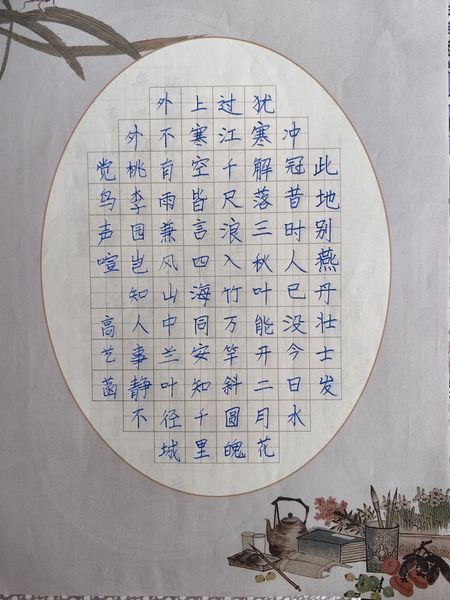 此地别燕丹壮士发
冲冠昔时人已没今日水
犹寒解落三秋叶能开二月花
过江千尺浪入竹万竿斜圆魄
上寒空皆言四海同安知千里
外不有雨兼风山中兰叶径城
外桃李园岂知人事静不
觉鸟声喧 高艺菡